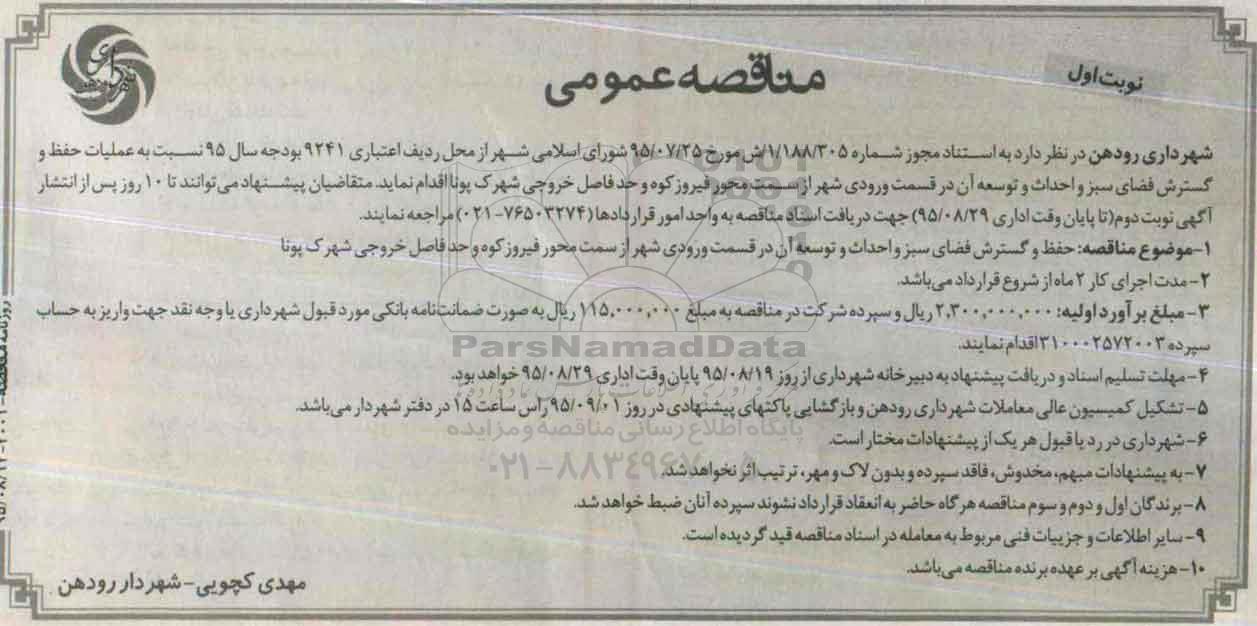 نوبت اول
مناقصه عمومی
شهرداری رودهن در نظر دارد به استناد مجوز شماره ۱/۱۸۸/۳۰۵/ش مورخ ۹۵/۰۷/۲۵ شورای اسلامی شهر از محل ردیف اعتباری ۹۲۴۱ بودجه سال ۹۵ نسبت به عملیات حفظ و
گسترش فضای سبز و احداث و توسعه آن در قسمت ورودی شهر از سمت محور فیروزکوه و حد فاصل خروجی شهرک پونا اقدام نماید. متقاضیان پیشنهاد می‌توانند تا ۱۰ روز پس از انتشار
آگهی نوبت دوم(تا پایان وقت اداری ۹۵/۰۸/۲۹) جهت دریافت اسناد مناقصه به واحد امور قراردادها (۷۶۵۰۳۲۷۴-۰۲۱) مراجعه نمایند.
۱-موضوع مناقصه: حفظ و گسترش فضای سبز و احداث و توسعه آن در قسمت ورودی شهر از سمت محور فیروزکوه و حد فاصل خروجی شهرک پونا
۲- مدت اجرای کار ۲ ماه از شروع قرارداد می‌باشد.
۳- مبلغ برآورد اولیه: ۲,۳۰۰,۰۰۰,۰۰۰ ریال و سپرده شرکت در مناقصه به مبلغ ۱۱۵,۰۰۰,۰۰۰ ریال به صورت ضمانت‌نامه بانکی مورد قبول شهرداری یا وجه نقد جهت واریز به حساب
سپرده ۳۱۰۰۰۲۵۷۲۰۰۳ اقدام نمایند.
۴- مهلت تسلیم اسناد و دریافت پیشنهاد به دبیرخانه شهرداری از روز ۹۵/۰۸/۱۹ پایان وقت اداری ۹۵/۰۸/۲۹ خواهد بود.
۵- تشکیل کمیسیون عالی معاملات شهرداری رودهن و بازگشایی پاکتهای پیشنهادی در روز ۹۵/۰۹/۰۱ رأس ساعت ۱۵ در دفتر شهردار می‌باشد.
۶- شهرداری در رد یا قبول هر یک از پیشنهادات مختار است.
۷- به پیشنهادات مبهم، مخدوش، فاقد سپرده و بدون لاک و مهر، ترتیب اثر نخواهد شد.
۸- برندگان اول و دوم و سوم مناقصه هرگاه حاضر به انعقاد قرارداد نشوند سپرده آنان ضبط خواهد شد.
۹- سایر اطلاعات و جزییات فنی مربوط به معامله در اسناد مناقصه قید گردیده است.
۱۰- هزینه آگهی بر عهده برنده مناقصه می‌باشد.
مهدی کچویی- شهردار رودهن
ParsNamadData
پایگاه اطلاع رسانی مناقصه و مزایده